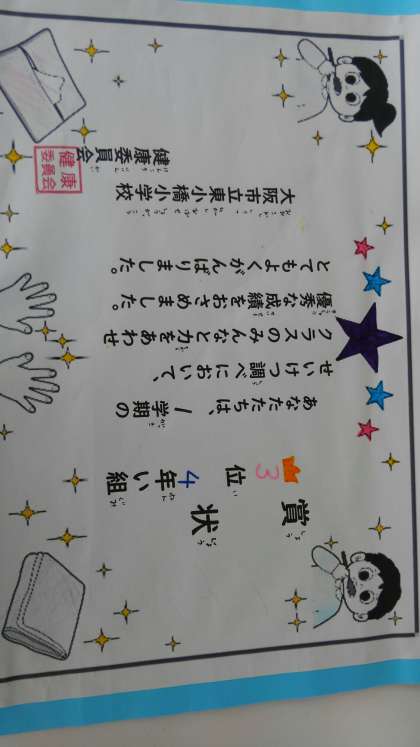 賞状
3位 4年い組
あなたたちは、一学期の
せいけつ調べにおいて、
クラスのみんなと力をあわせ
優秀な成績をおさめました。
とてもよくがんばりました。
大阪市立東小橋小学校
健康委員会
健康
委員会